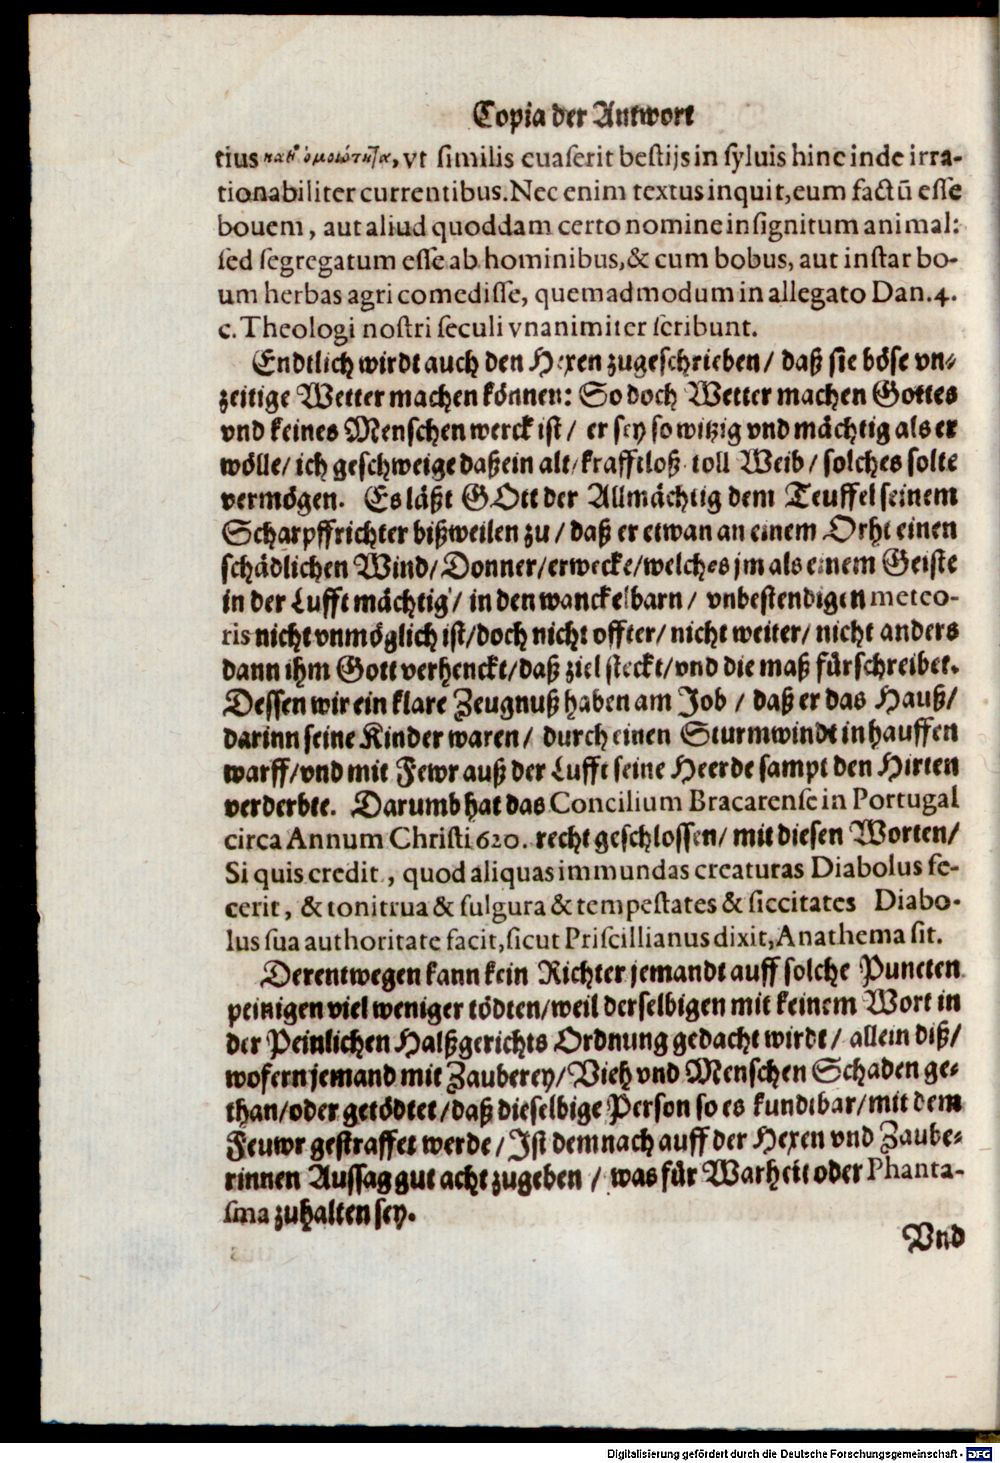 Copia der Antwort
tius καθ' ὁμοιότητα, vt similis euaserit bestijs in syluis hinc inde irra-
tionabiliter currentibus. Nec enim textus inquit, eum factũ esse
bouem, aut aliud quoddam certo nomine insignitum animal:
sed segregatum esse ab hominibus, & cum bobus, aut instar bo-
um herbas agri comedisse, quemadmodum in allegato Dan. 4.
c. Theologi nostri seculi vnanimiter scribunt.
Endtlich wirdt auch den Hexen zugeschrieben/ daß sie böse vn-
zeitige Wetter machen können: So doch Wetter machen Gottes
vnd keines Menschen werck ist/ er sey so witzig vnd mächtig als er
wölle/ ich geschweige daß ein alt/ krafftloß toll Weib/ solches solte
vermögen. Es läßt GOtt der Allmächtig dem Teuffel seinem
Scharpffrichter bißweilen zu/ daß er etwan an einem Orht einen
schädlichen Wind/ Donner/ erwecke/ welches jm als einem Geiste
in der Lufft mächtig/ in den wanckelbarn/ vnbestendigen meteo-
ris nicht vnmöglich ist/ doch nicht offter/ nicht weiter/ nicht anders
dann ihm Gott verhenckt/ daß ziel steckt/ vnd die maß fürschreibet.
Dessen wir ein klare Zeugnuß haben am Job/ daß er das Hauß/
darinn seine Kinder waren/ durch einen Sturmwindt in hauffen
warff/ vnd mit Fewr auß der Lufft seine Heerde sampt den Hirten
verderbte. Darumb hat das Concilium Bracarense in Portugal
circa Annum Christi 620. recht geschlossen/ mit diesen Worten/
Si quis credit, quod aliquas immundas creaturas Diabolus fe-
cerit, & tonitrua & fulgura & tempestates & siccitates Diabo-
lus sua authoritate facit, sicut Priscillianus dixit, Anathema sit.
Derentwegen kann kein Richter jemandt auff solche Puncten
peinigen viel weniger tödten/ weil derselbigen mit keinem Wort in
der Peinlichen Halßgerichts Ordnung gedacht wirdt/ allein diß/
wofern jemand mit Zauberey/ Vieh vnd Menschen Schaden ge-
than/ oder getödtet/ daß dieselbige Person so es kundtbar/ mit dem
Feuwr gestraffet werde/ Ist demnach auff der Hexen vnd Zaube-
rinnen Aussag gut acht zugeben/ was für Warheit oder Phanta-
sma zuhalten sey.
Vnd
Digitalisierung gefördert durch die Deutsche Forschungsgemeinschaft - DFG